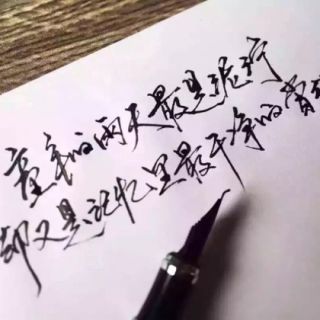 童年的雨天最是泥泞
却又是记忆里最干净的